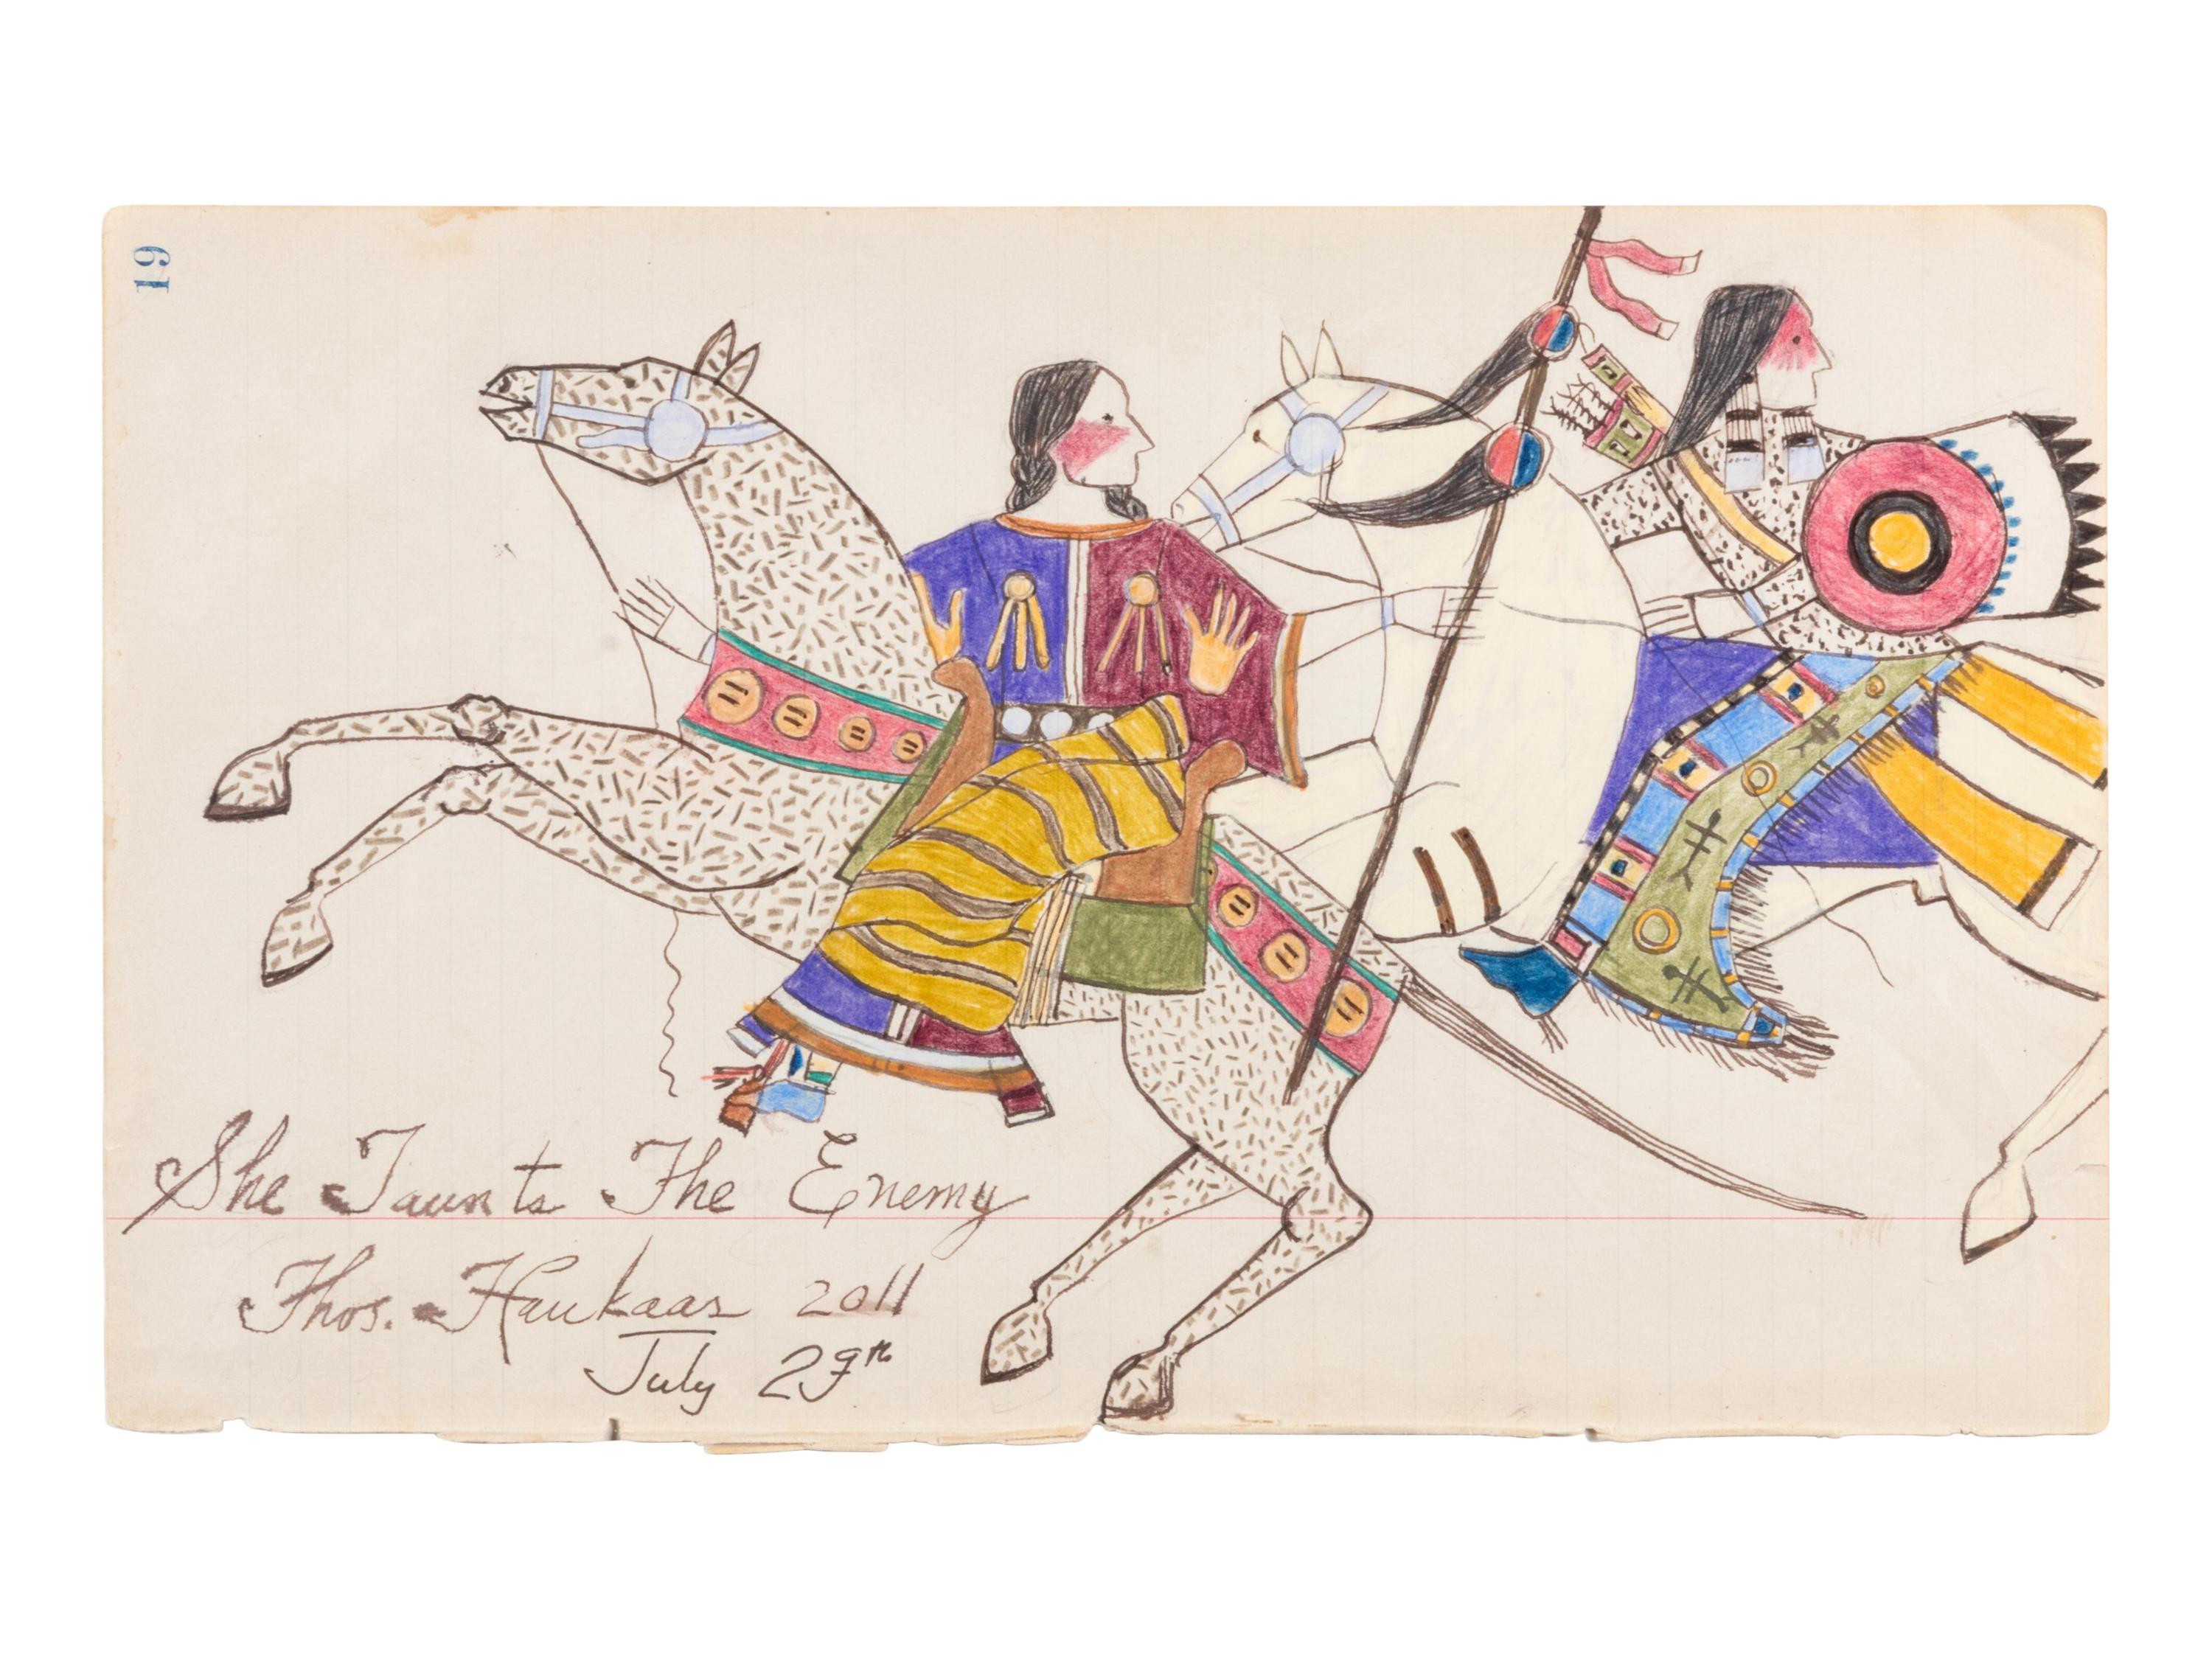 19
She Taunts The Enemy
Thos. Haukaas 2011
July 29th